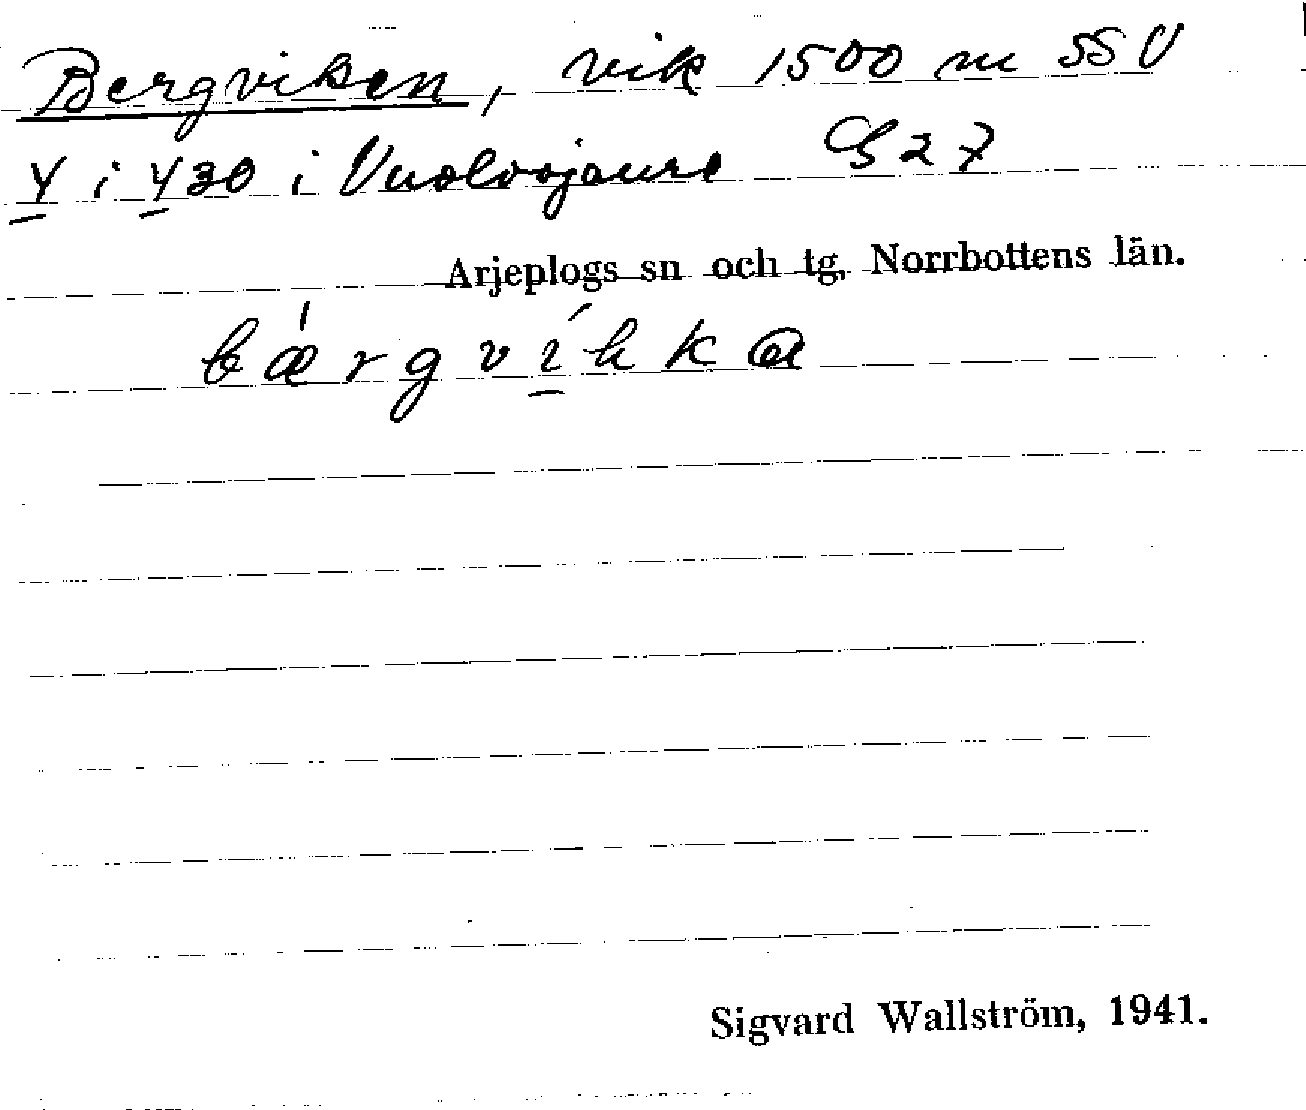 Bergviken, vik 1500 m SSV
4 i 430 i Vuolvojaure G27
Arjeplogs sn och tg, Norrbottens län.
bǽrgvíhka
Sigvard Wallström, 1941.